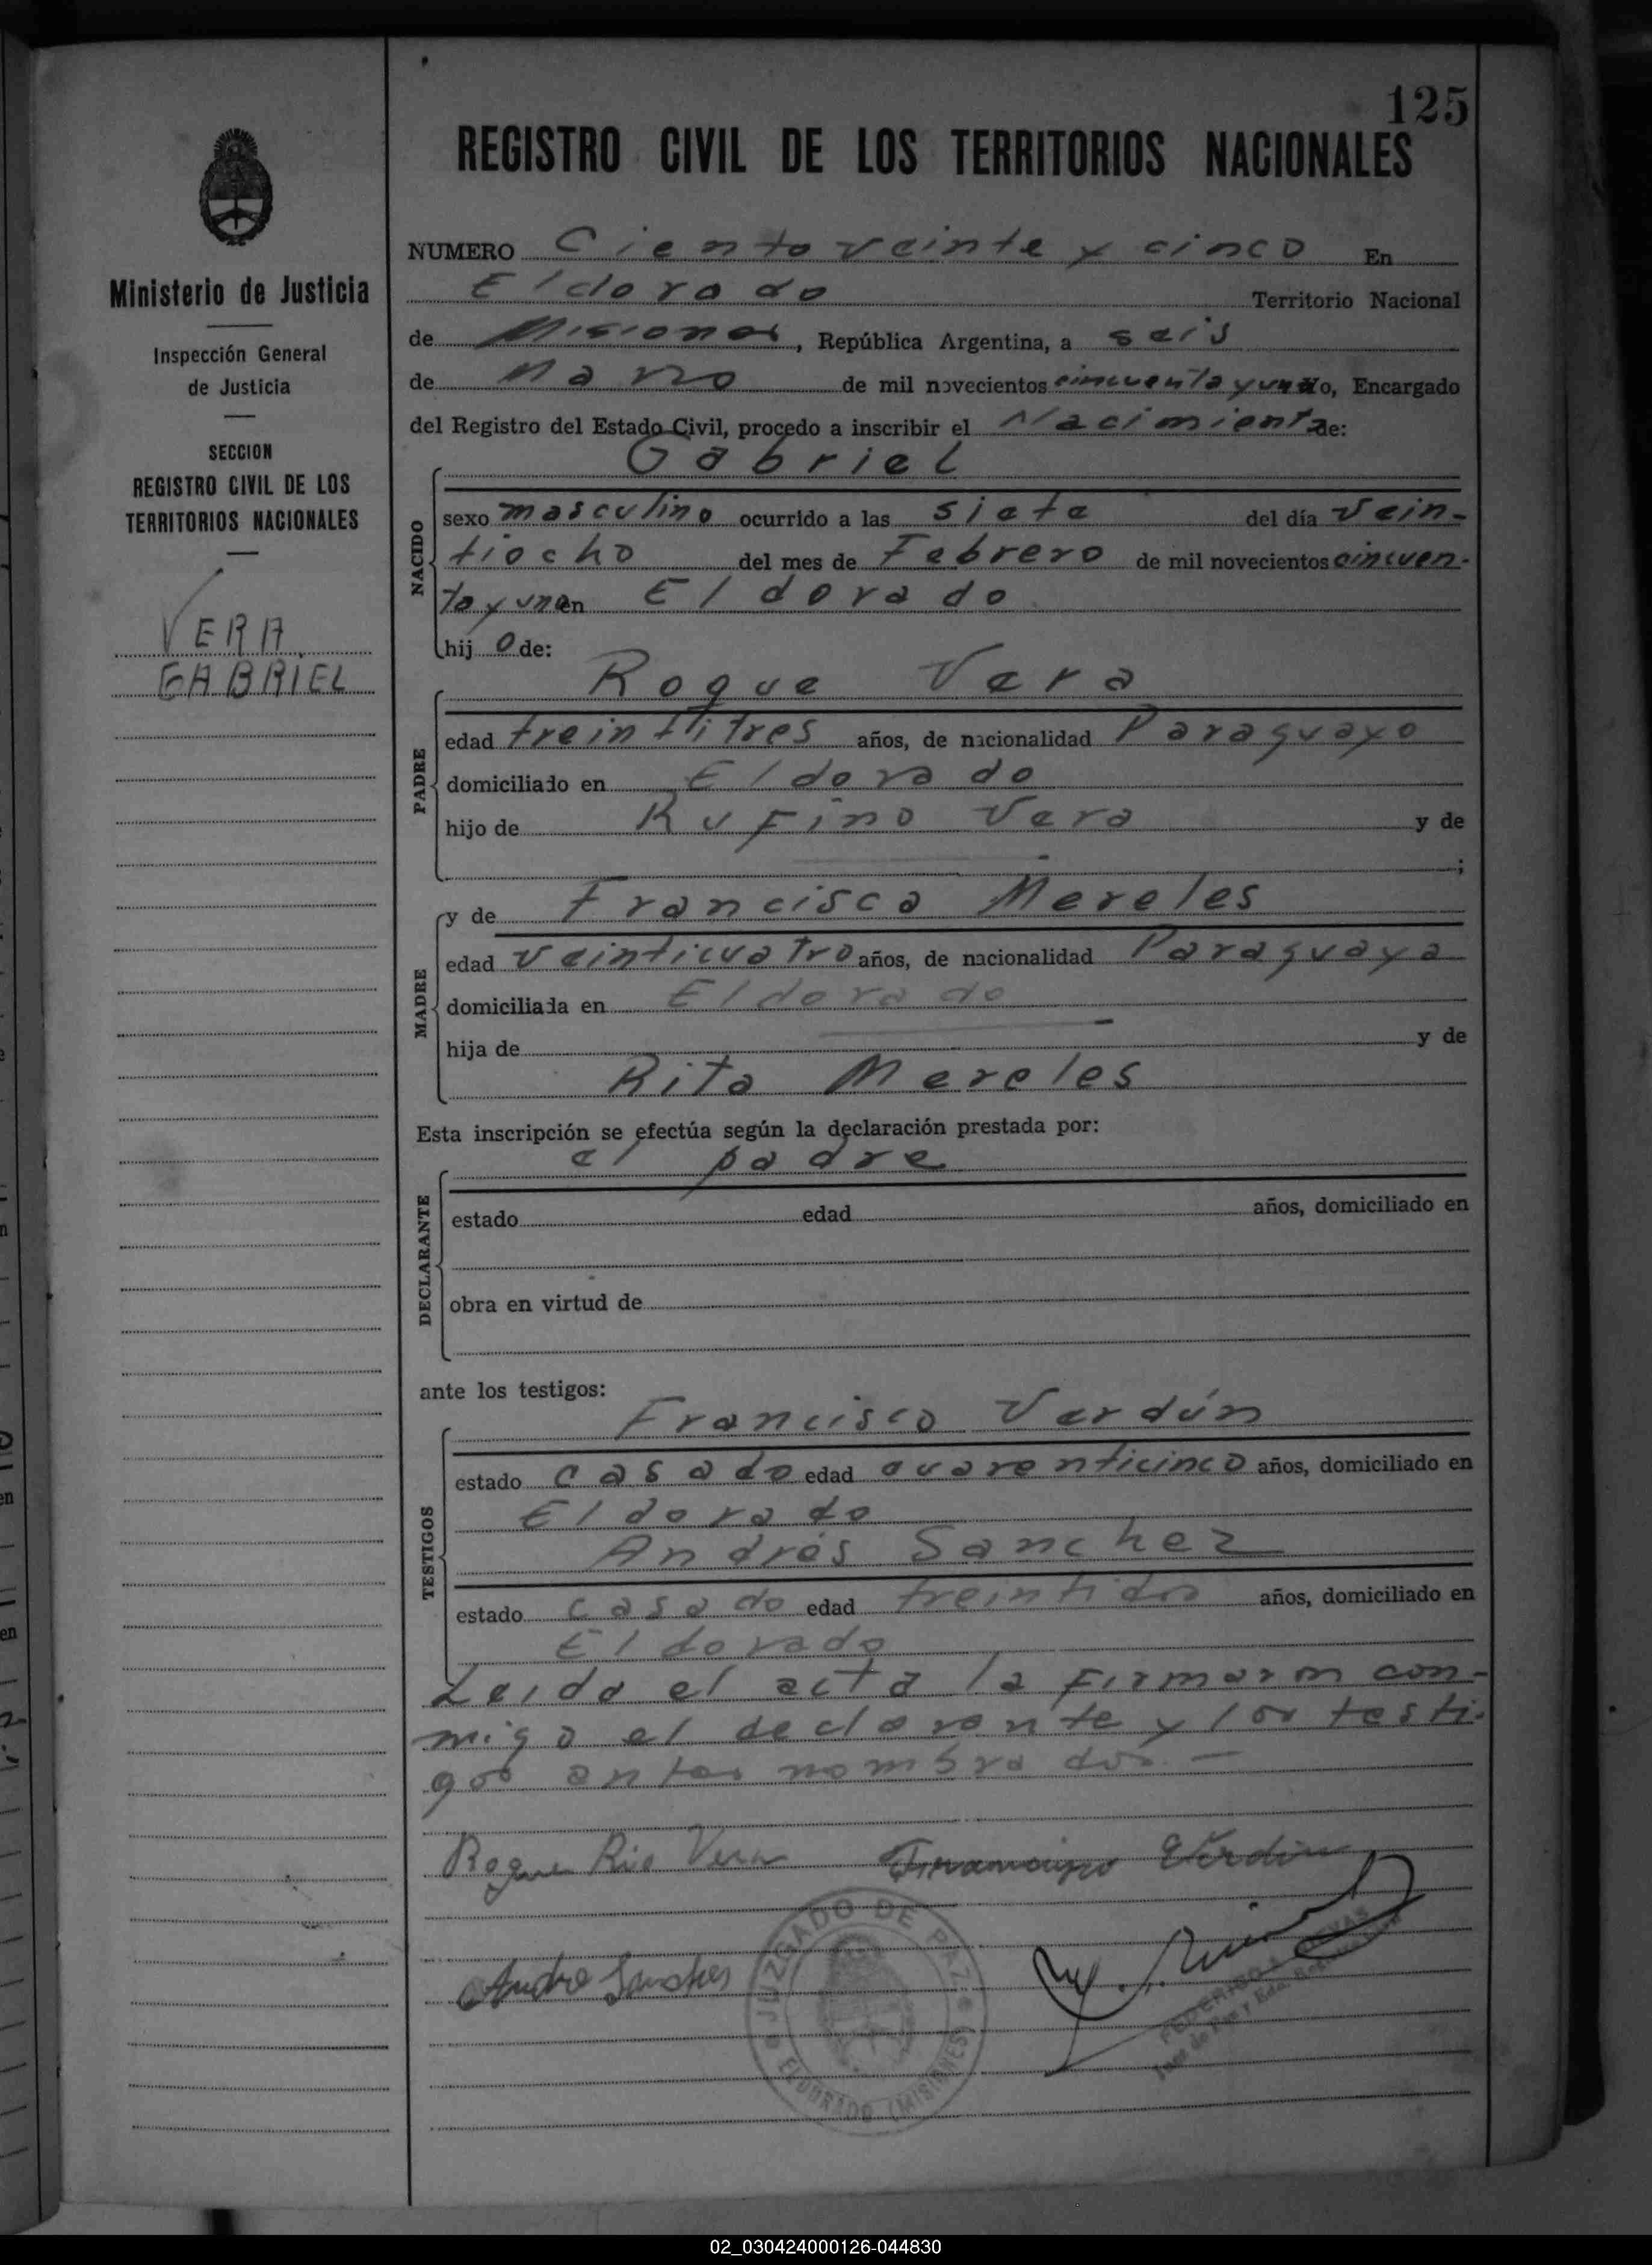 125
REGISTRO CIVIL DE LOS TERRITORIOS NACIONALES
Ministerio de Justicia
Inspección General
de Justicia
SECCION
REGISTRO CIVIL DE LOS
TERRITORIOS NACIONALES
VERA
GABRIEL
NUMERO Ciento veinte y cinco En
Eldorado Territorio Nacional
de Misiones, República Argentina, a seis
de Marzo de mil novecientos cincuenta y uno, Encargado
del Registro del Estado Civil, procedo a inscribir el Nacimiento de:
NACIDO
Gabriel
sexo masculino ocurrido a las siete del día vein-
tiocho del mes de Febrero de mil novecientos cincuen-
ta y uno en Eldorado
hijo de:
PADRE
Roque Vera
edad treintitres años, de nacionalidad Paraguayo
domiciliado en Eldorado
hijo de Rufino Vera y de
;
MADRE
y de Francisca Mereles
edad veinticuatro años, de nacionalidad Paraguaya
domiciliada en Eldorado
hija de y de
Rita Mereles
Esta inscripción se efectúa según la declaración prestada por:
DECLARANTE
el padre
estado edad años, domiciliado en
obra en virtud de
ante los testigos:
TESTIGOS
Francisco Verdún
estado casado edad cuarenticinco años, domiciliado en
Eldorado
Andrés Sanchez
estado casado edad treintidos años, domiciliado en
Eldorado
Leida el acta la firmaron con-
migo el declarante y los testi-
gos antes nombrados.—
Roque Rio Vera
Verdun
Andre Sanches
JUZGADO DE PAZ
ELDORADO (MISIONES)
02_030424000126-044830